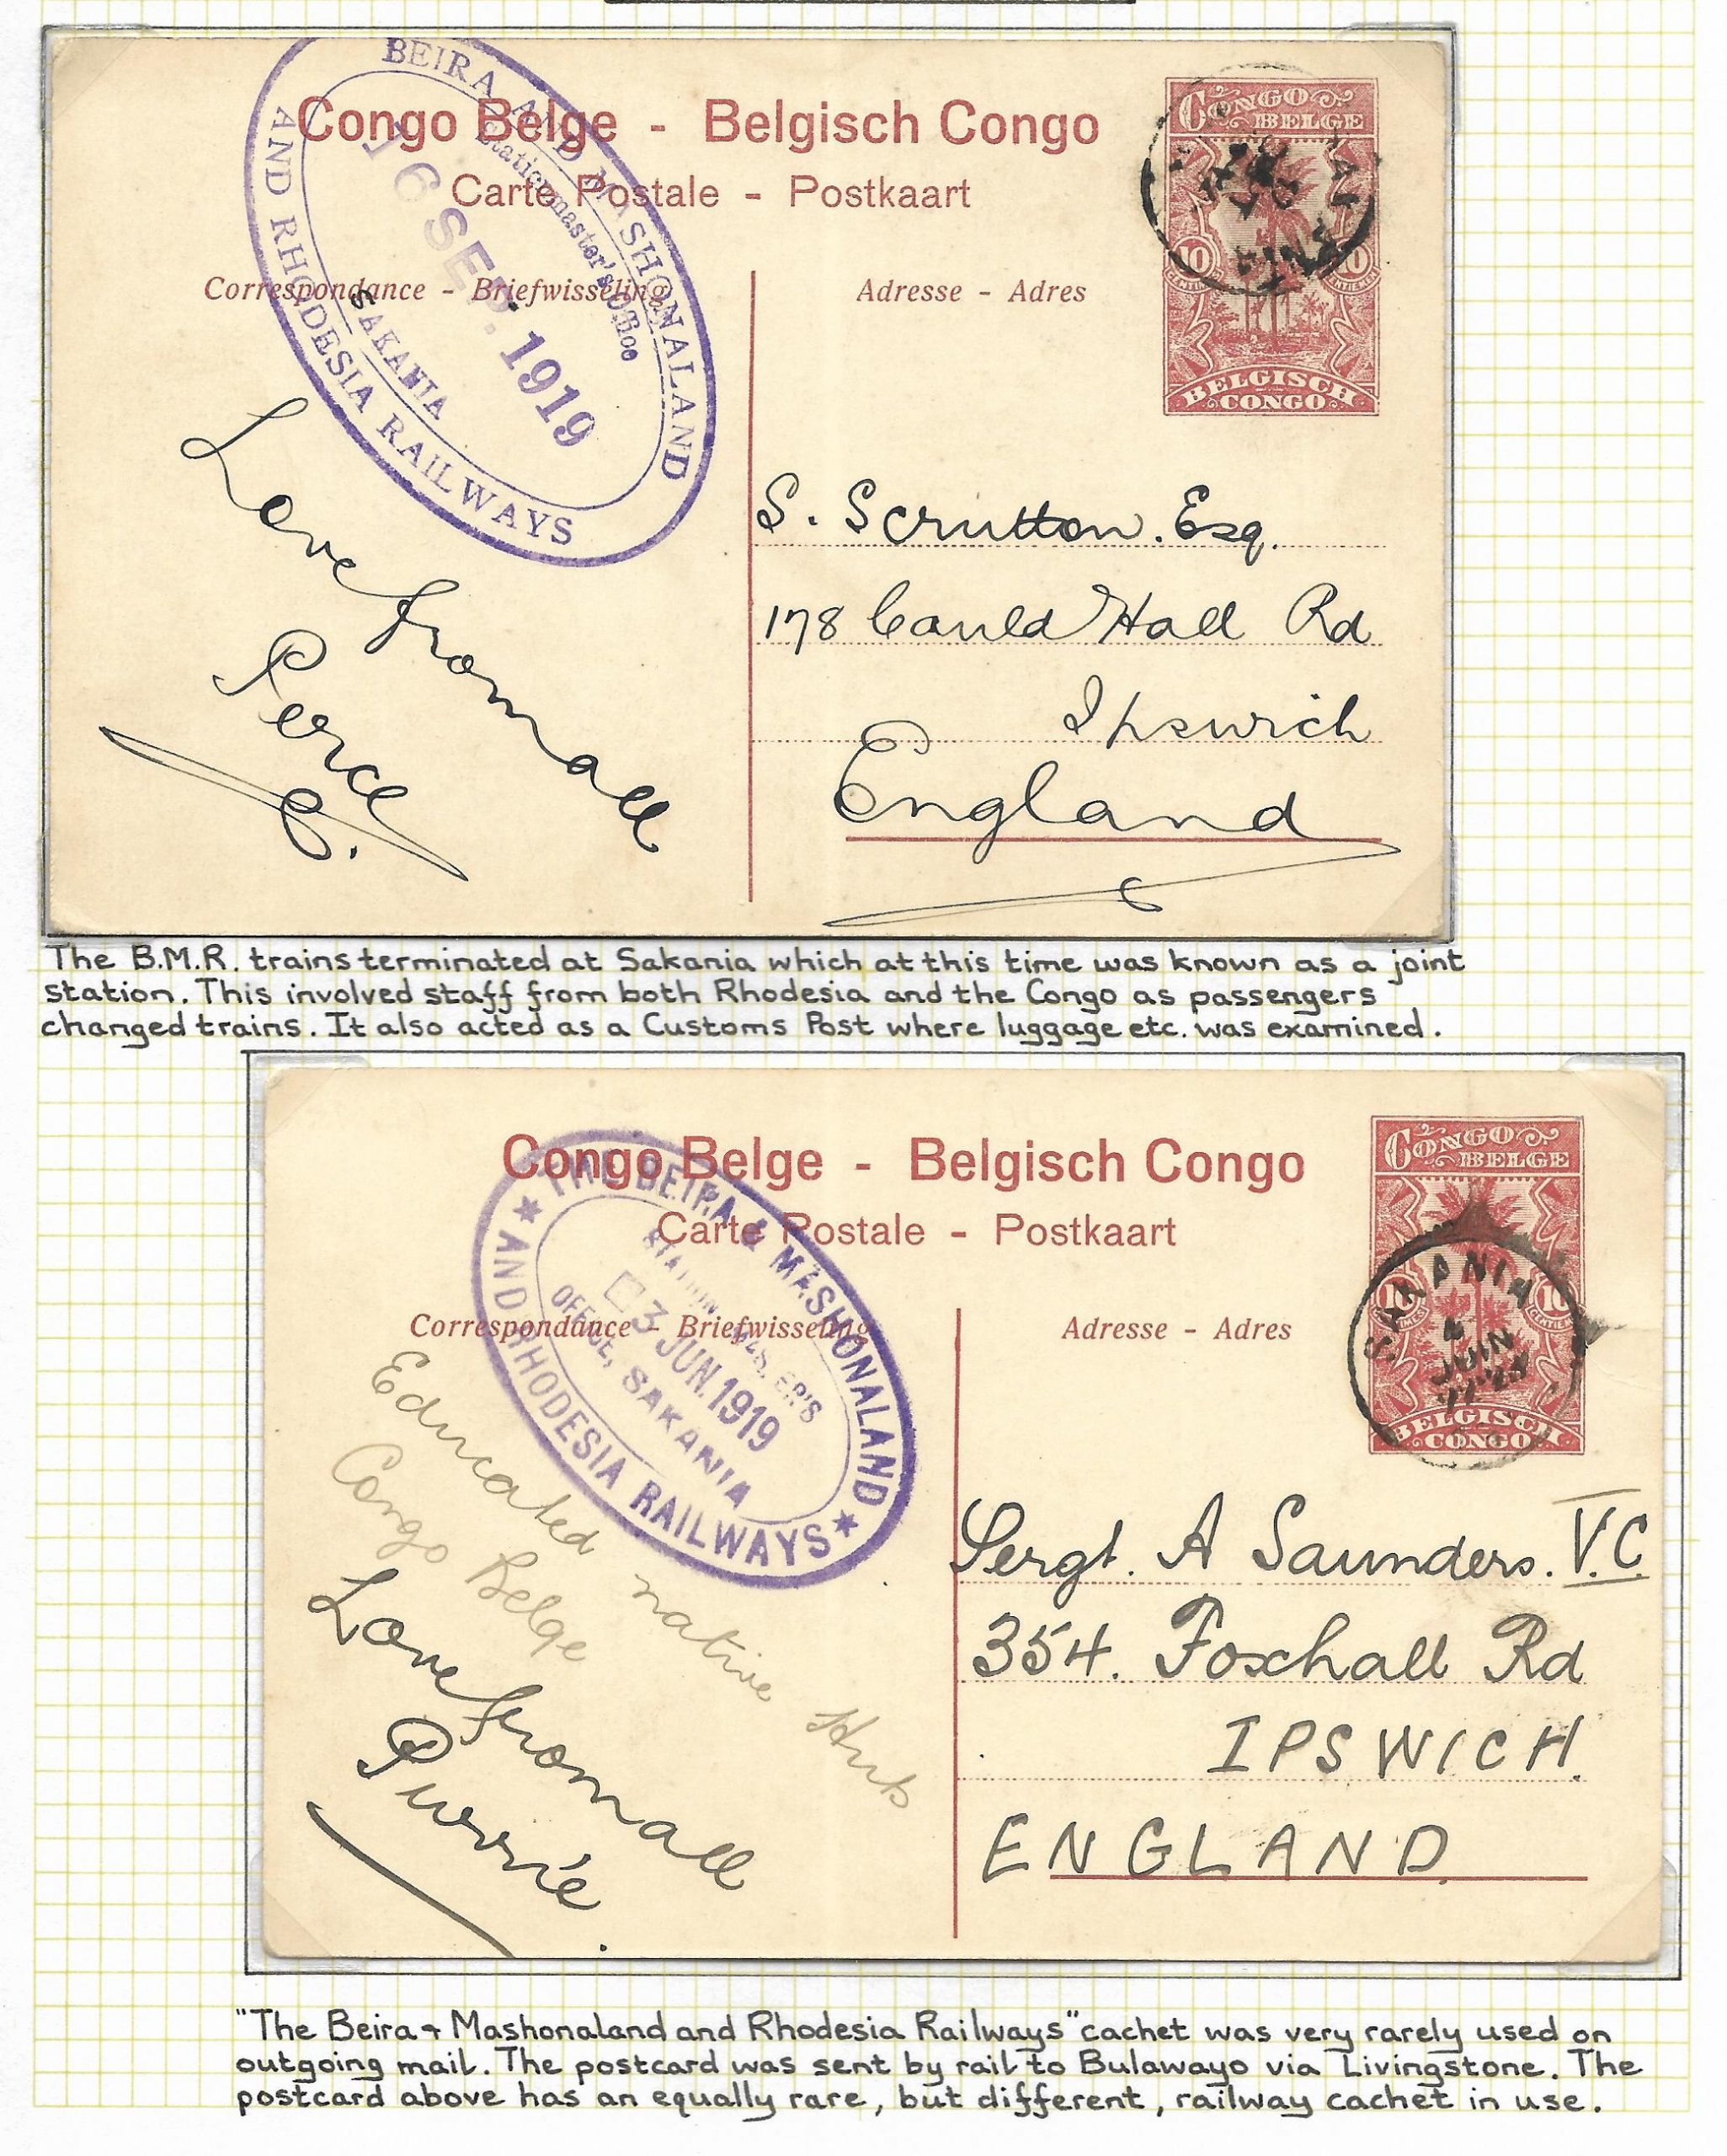 Congo Belge - Belgisch Congo
Carte Postale - Postkaart
Correspondance - Briefwisseling
Adresse - Adres
BEIRA AND MASHONALAND
AND RHODESIA RAILWAYS
Stationmaster's Office
16 SEP. 1919
SAKANIA
CONGO
BELGE
10 10
BELGISCH
CONGO
Love from all
Percie
S. Scrutton. Esq.
178 Cauld Hall Rd
Ipswich
England
The B.M.R. trains terminated at Sakania which at this time was known as a joint
station. This involved staff from both Rhodesia and the Congo as passengers
changed trains. It also acted as a Customs Post where luggage etc. was examined.
Congo Belge - Belgisch Congo
Carte Postale - Postkaart
Correspondance - Briefwisseling
Adresse - Adres
THE BEIRA & MASHONALAND
AND RHODESIA RAILWAYS
STATION MASTER'S
3 JUN. 1919
OFFICE, SAKANIA
CONGO
BELGE
10 10
BELGISCH
CONGO
SAKANIA
JUIN
Educated native Huts
Congo Belge
Love from all
Sergt. A Saunders. V.C.
354. Foxhall Rd
IPSWICH.
ENGLAND
"The Beira & Mashonaland and Rhodesia Railways" cachet was very rarely used on
outgoing mail. The postcard was sent by rail to Bulawayo via Livingstone. The
postcard above has an equally rare, but different, railway cachet in use.